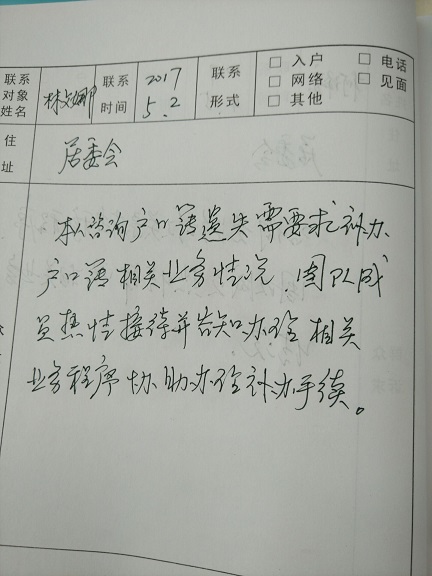 联系对象姓名 林文娜 联系时间 2017 5.2 联系形式 □ 入户 □ 电话 □ 网络 □ 见面 □ 其他
住址 居委会
本人咨询户口簿遗失需要求补办
户口簿相关业务情况,团队成
员热情接待并告知办理相关
业务程序协助办理补办手续。